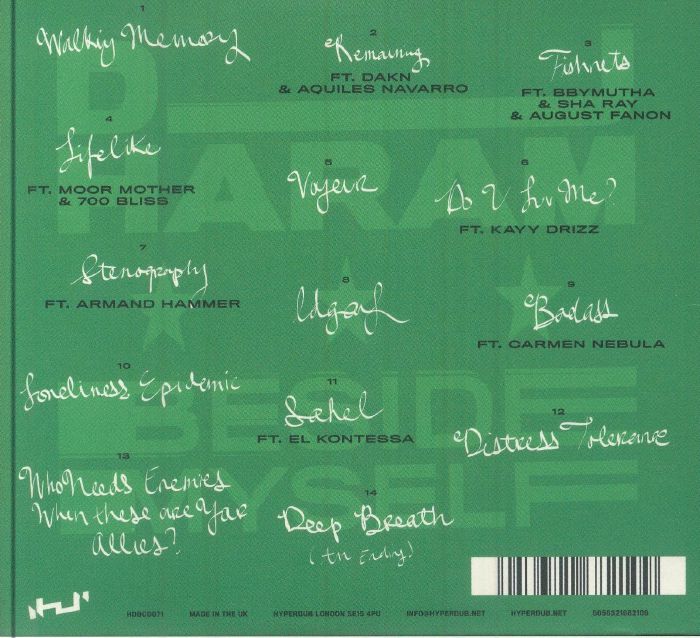 1
Walking Memory
2
Remaining
FT. DAKN
& AQUILES NAVARRO
3
Fishnets
FT. BBYMUTHA
& SHA RAY
& AUGUST FANON
4
Lifelike
FT. MOOR MOTHER
& 700 BLISS
5
Voyeur
6
Do U Luv Me?
FT. KAYY DRIZZ
7
Stenography
FT. ARMAND HAMMER
8
Idgaf
9
Badass
FT. CARMEN NEBULA
10
Loneliness Epidemic
11
Sahel
FT. EL KONTESSA
12
Distress Tolerance
13
Who Needs Enemies
When these are Your
Allies?
14
Deep Breath
HARAM
BESIDE
MYSELF
HDBCD071
MADE IN THE UK
HYPERDUB LONDON SE15 4PU
INFO@HYPERDUB.NET
HYPERDUB.NET